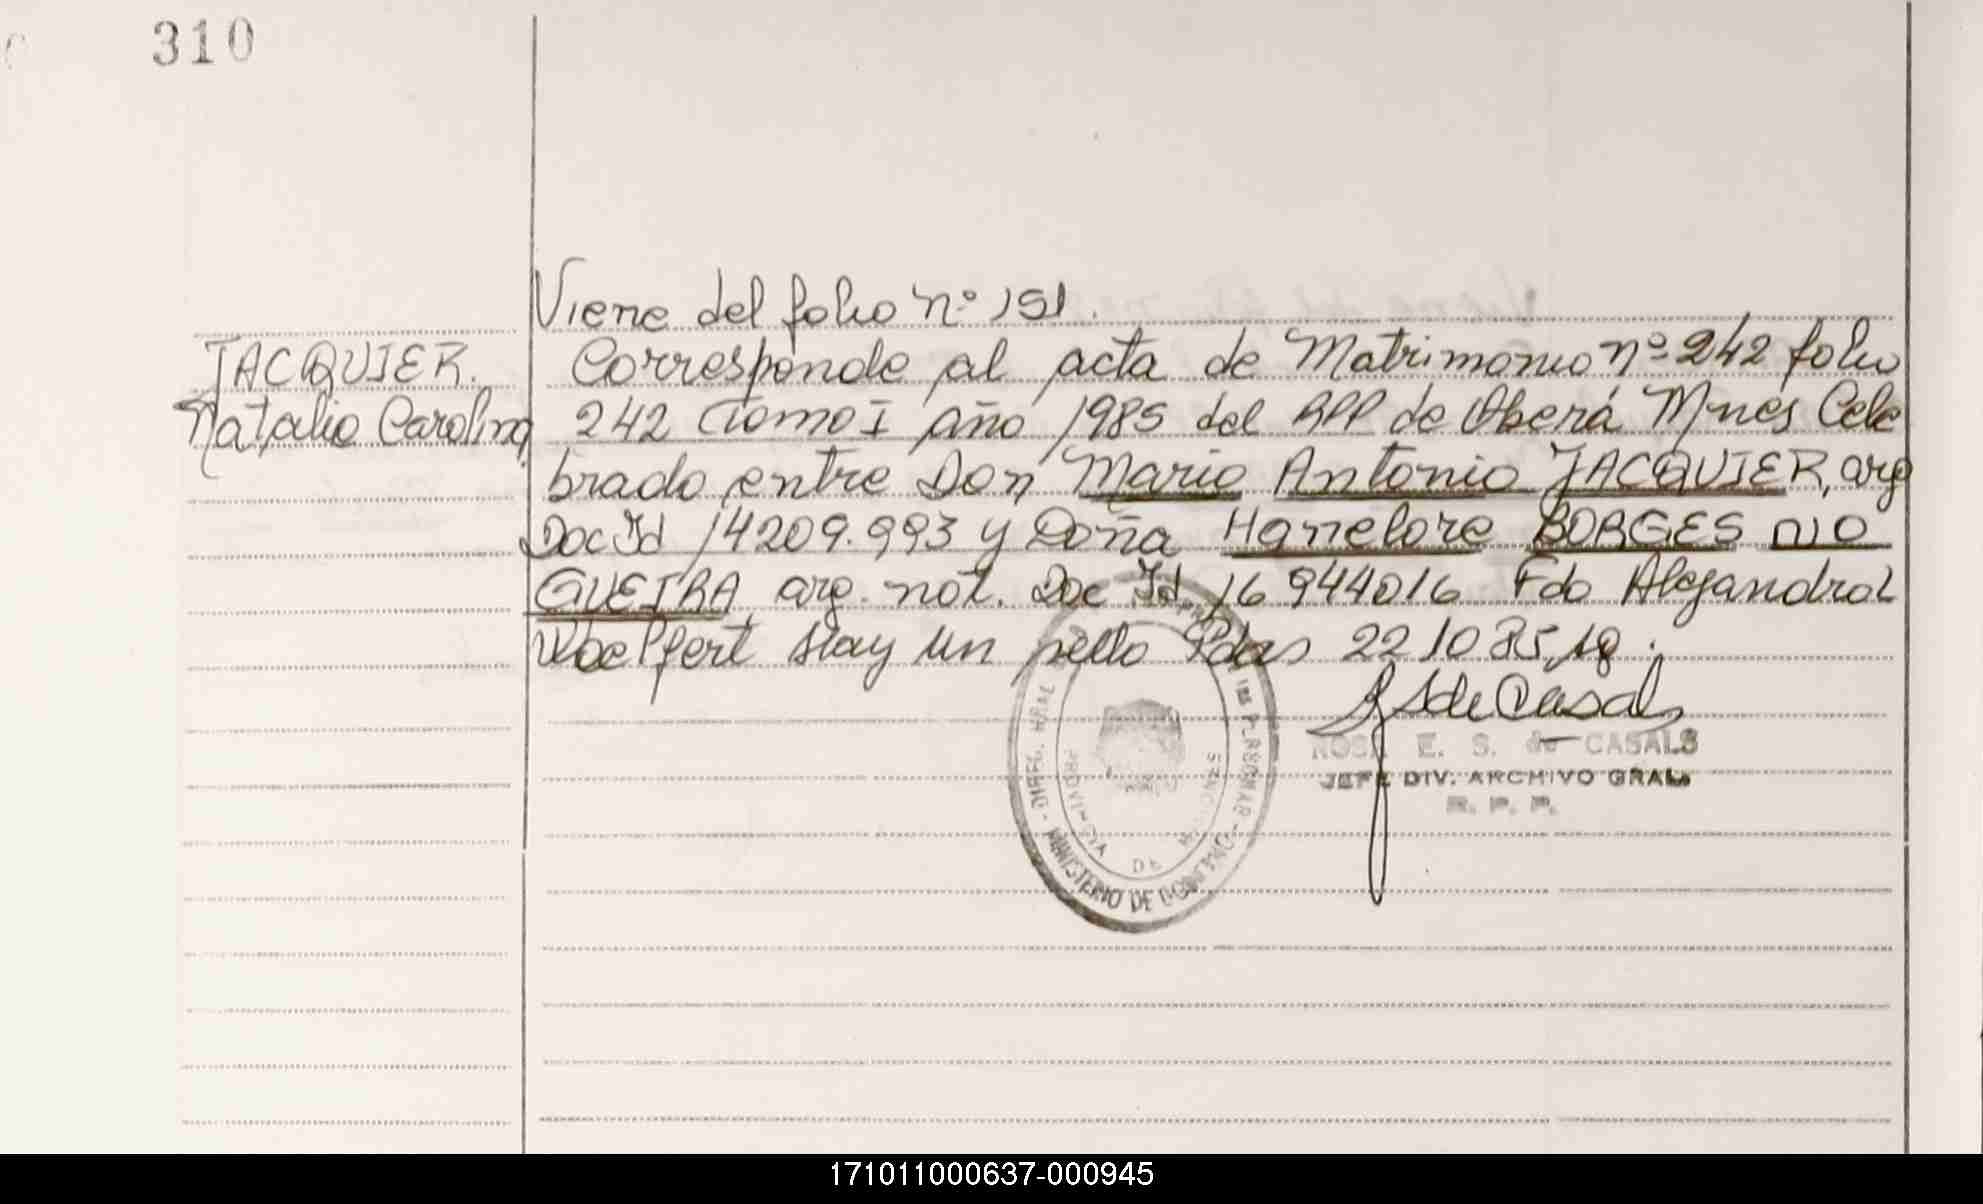 310
Viene del folio nº 191.
JACQUIER.
Natalia Carolina
Corresponde al acta de Matrimonio nº 242 folio
242 Tomo I año 1985 del RPP de Oberá Mnes Cele
brado entre Don Mario Antonio JACQUIER, arg
Doc Id 14209.993 y Doña Hannelore BORGES NO
GUEIRA arg. nat. Doc Id 16 944016 Fdo Alejandro L
Woelffert Hay un sello Pdas 22 10 85
ROSA E. S. de CASALS
JEFE DIV. ARCHIVO GRAL.
R. P. P.
MINISTERIO DE GOBIERNO
PROVINCIA DE MISIONES
171011000637-000945